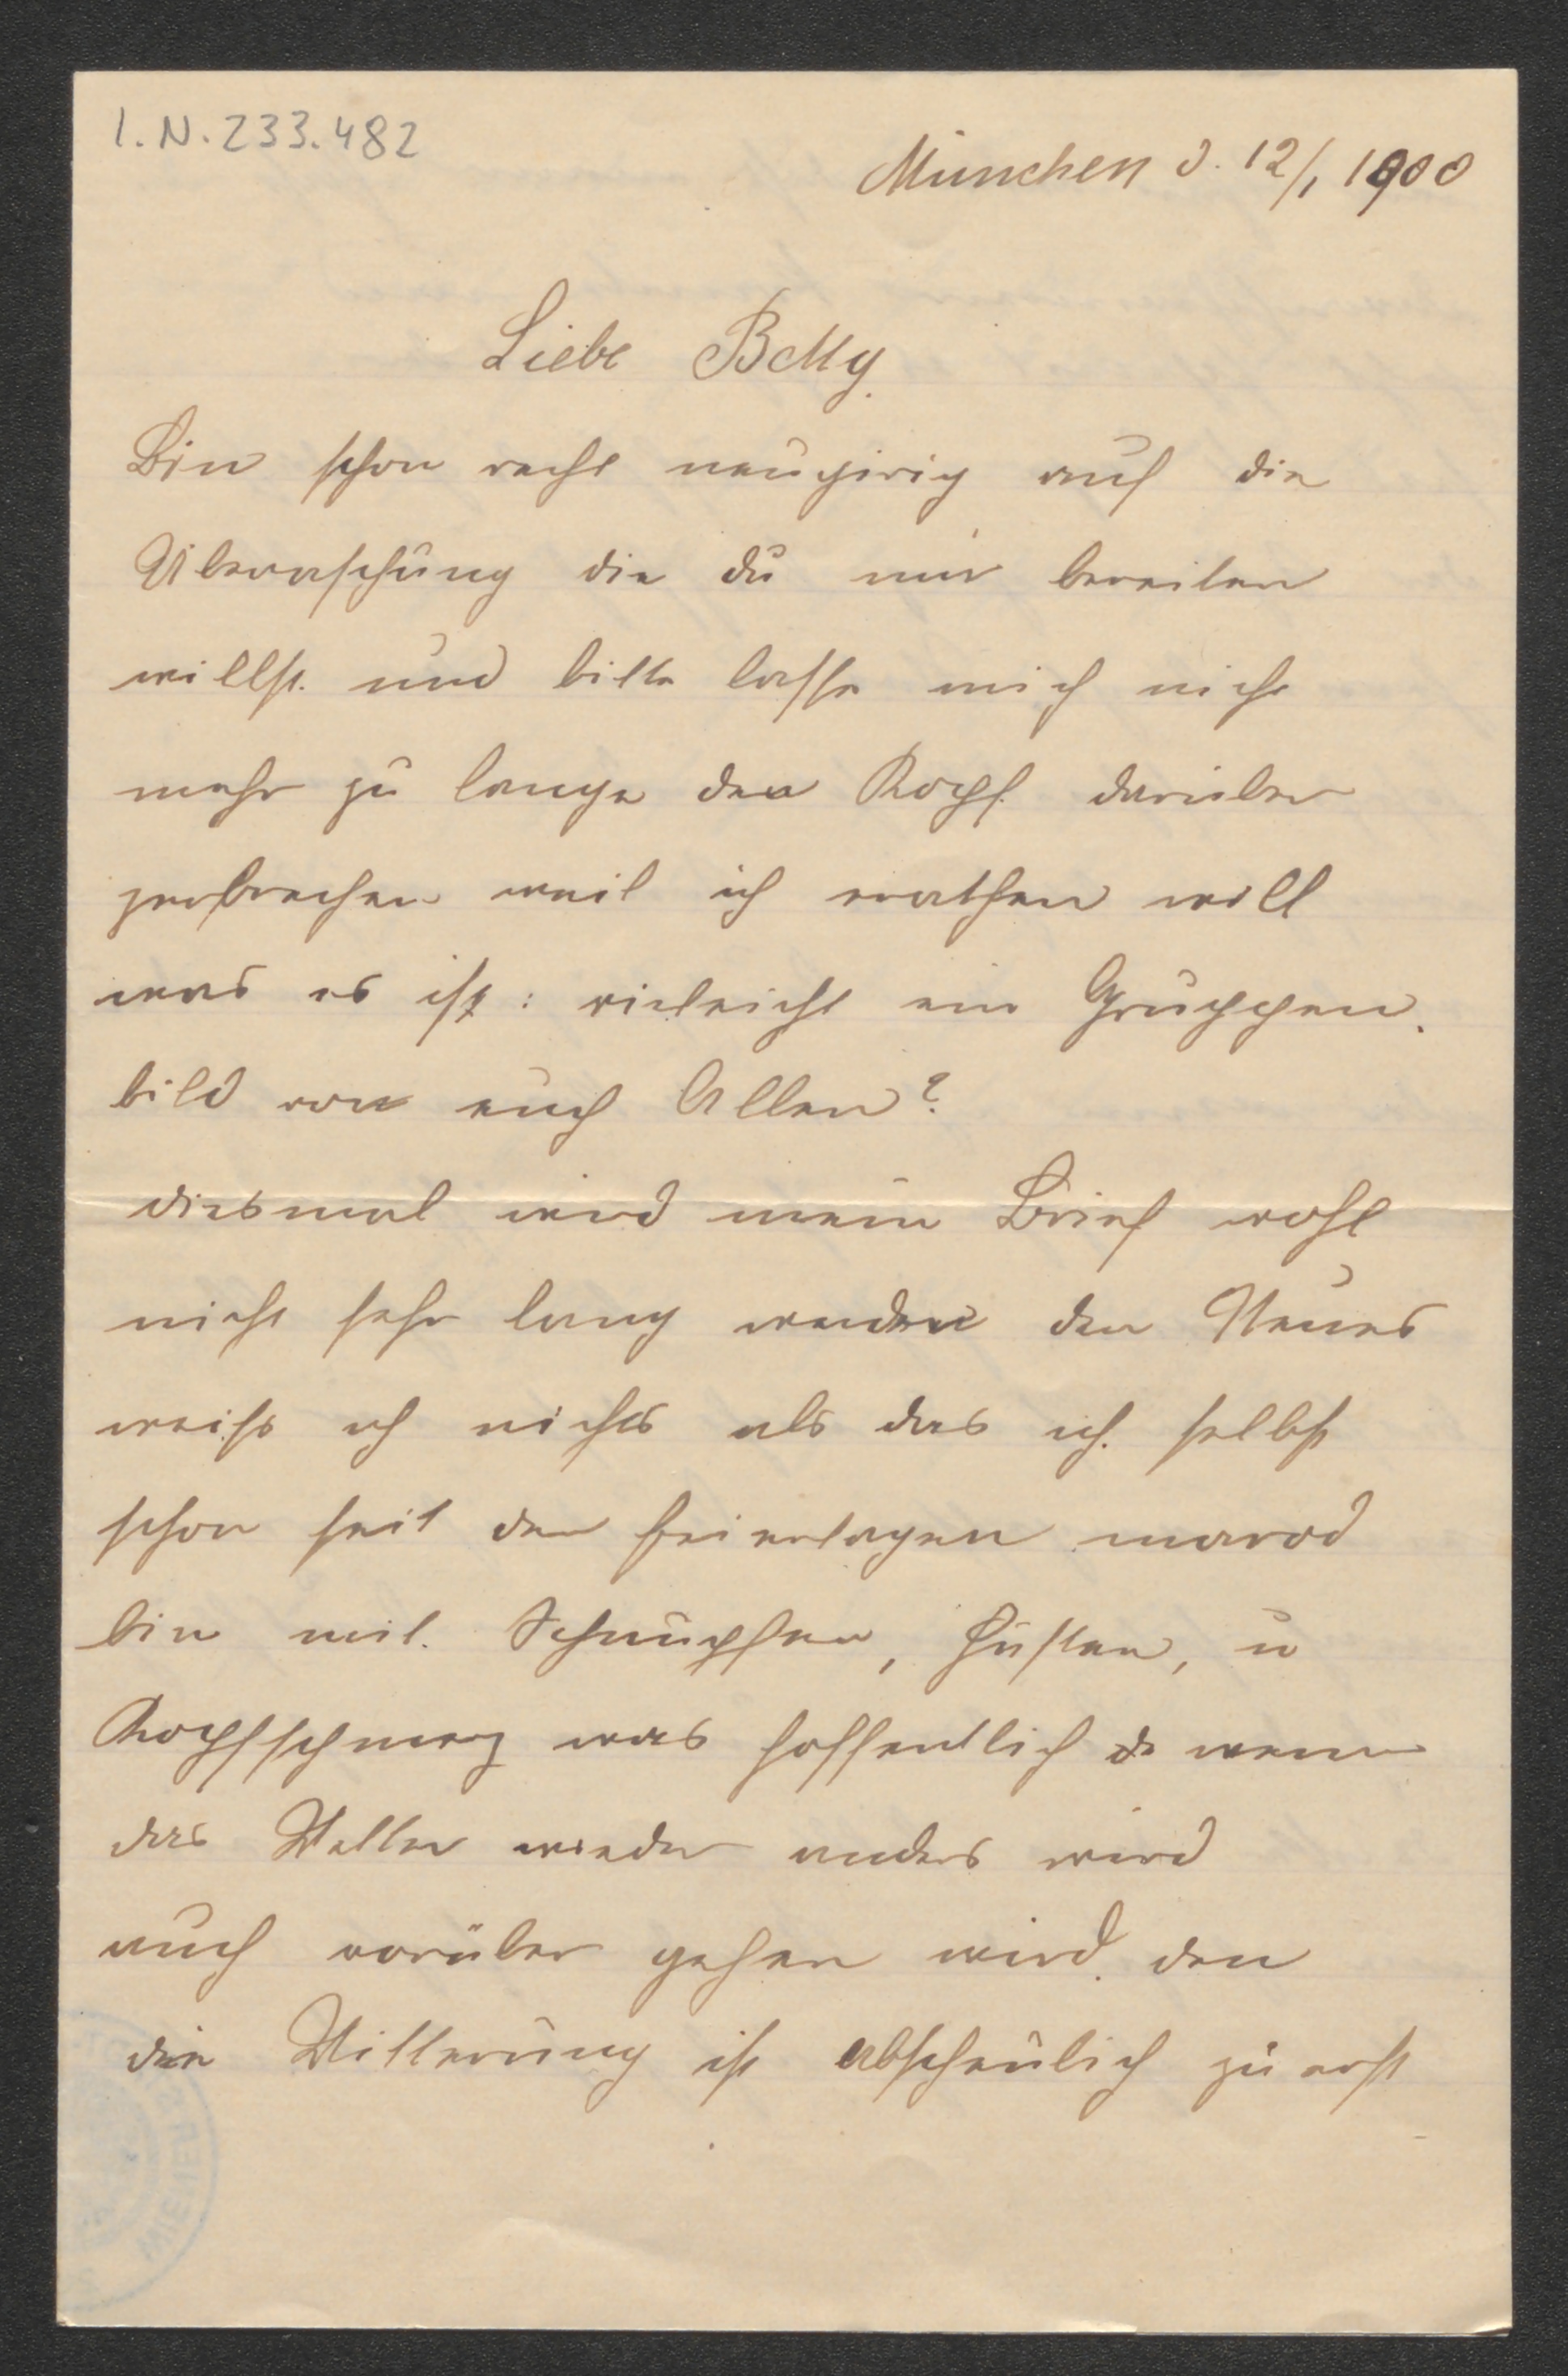 I.N. 233.482
München d. 12/1 1900
Liebe Betty.
Bin schon recht neugirig auf die
Überraschung die du mir bereiten
willst. und bitte lasse mich nicht
mehr zu lange den Kopf darüber
zerbrechen weil ich errathen will
was es ist: vieleicht ein Gruppen.
bild von euch Allen?
diesmal wird mein Brief wohl
nicht sehr lang werden den Neues
weiß ich nichts als das ich selbst
schon seit den Feiertagen marod
bin mit Schnupfen, Husten, u
Kopfschmerz was hoffentlich wenn
das Wetter wieder anders wird
auch vorüber gehen wird. den
die Witterung ist abscheulich zu erst
WIENER